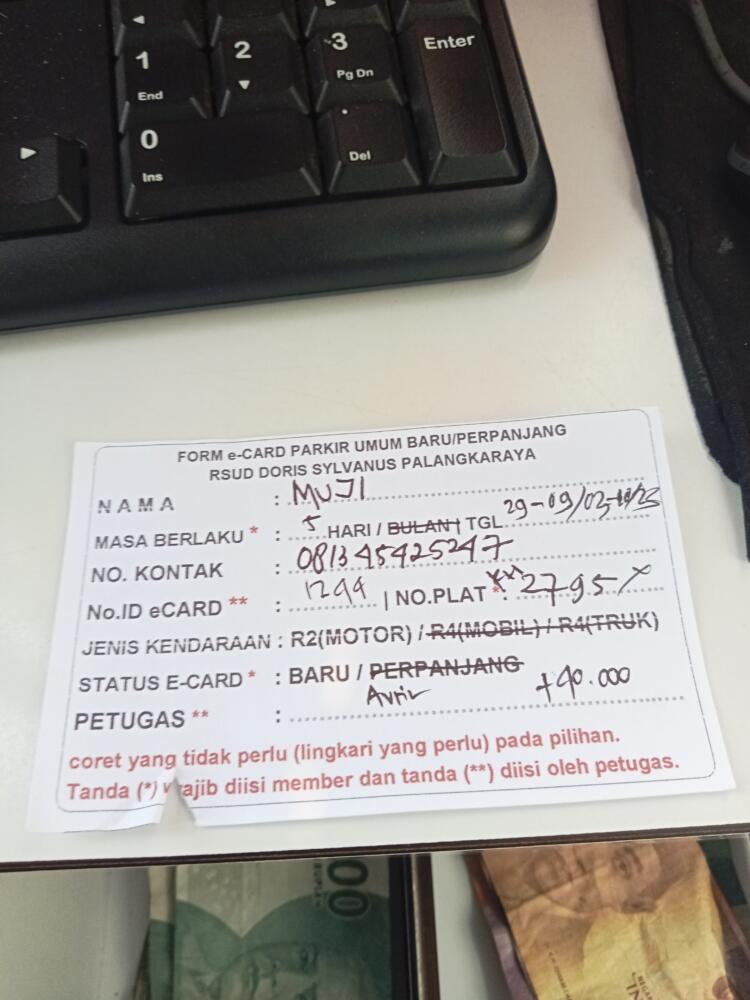 1
End
2
3
Pg Dn
Enter
0
Ins
.
Del
FORM e-CARD PARKIR UMUM BARU/PERPANJANG
RSUD DORIS SYLVANUS PALANGKARAYA
NAMA : MUJI
MASA BERLAKU * : 5 HARI / BULAN | TGL 29-09/03
NO. KONTAK : 081345425247
No.ID eCARD ** : 1299 | NO.PLAT *: 2795
JENIS KENDARAAN : R2(MOTOR) / R4(MOBIL) / R4(TRUK)
STATUS E-CARD * : BARU / PERPANJANG
PETUGAS ** : +40.000
coret yang tidak perlu (lingkari yang perlu) pada pilihan.
Tanda (*) wajib diisi member dan tanda (**) diisi oleh petugas.
00